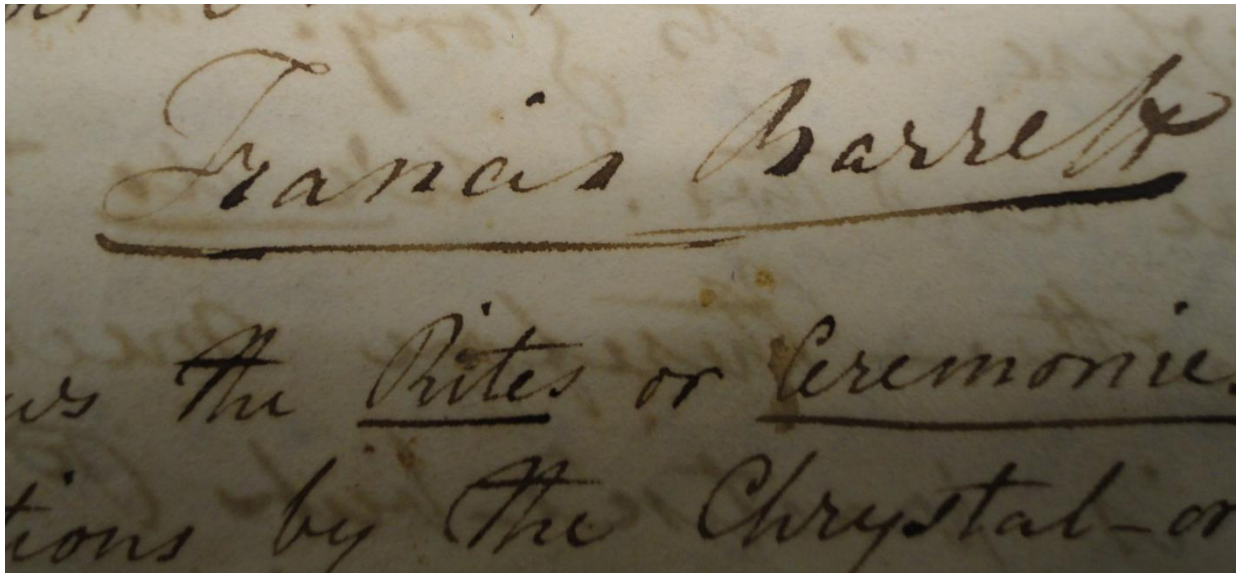 Francis Barrett
the Rites or Ceremonies
tions by the Chrystal-or